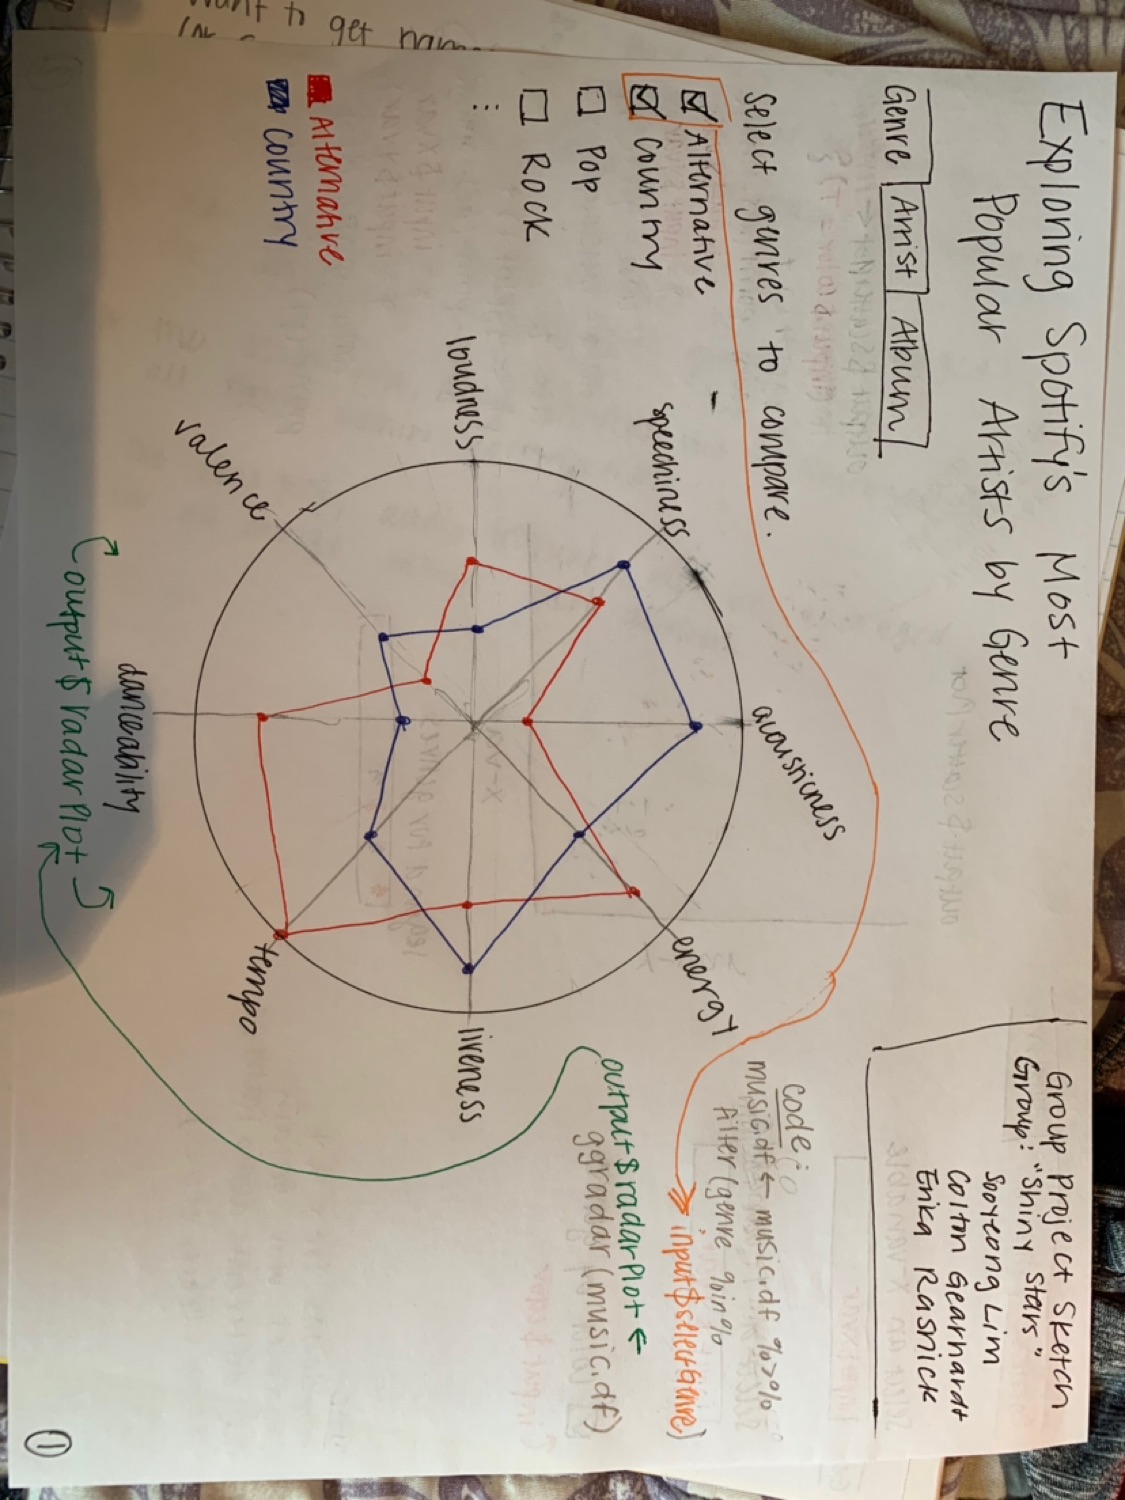 Exploring Spotify's Most
Popular Artists by Genre
Group Project Sketch
Group: "Shiny Stars"
Sooyeong Lim
Colton Gearhardt
Erika Rasnick
Genre Artist Album
Select genres to compare.
Alternative
Country
Pop
Rock
⋮
Alternative
Country
acousticness
energy
liveness
tempo
danceability
valence
loudness
speechiness
code:
music.df ← music.df %>%
filter(genre %in%
input$selectGenre)
output$radarPlot ←
ggradar(music.df)
output$radarPlot
1
want to get